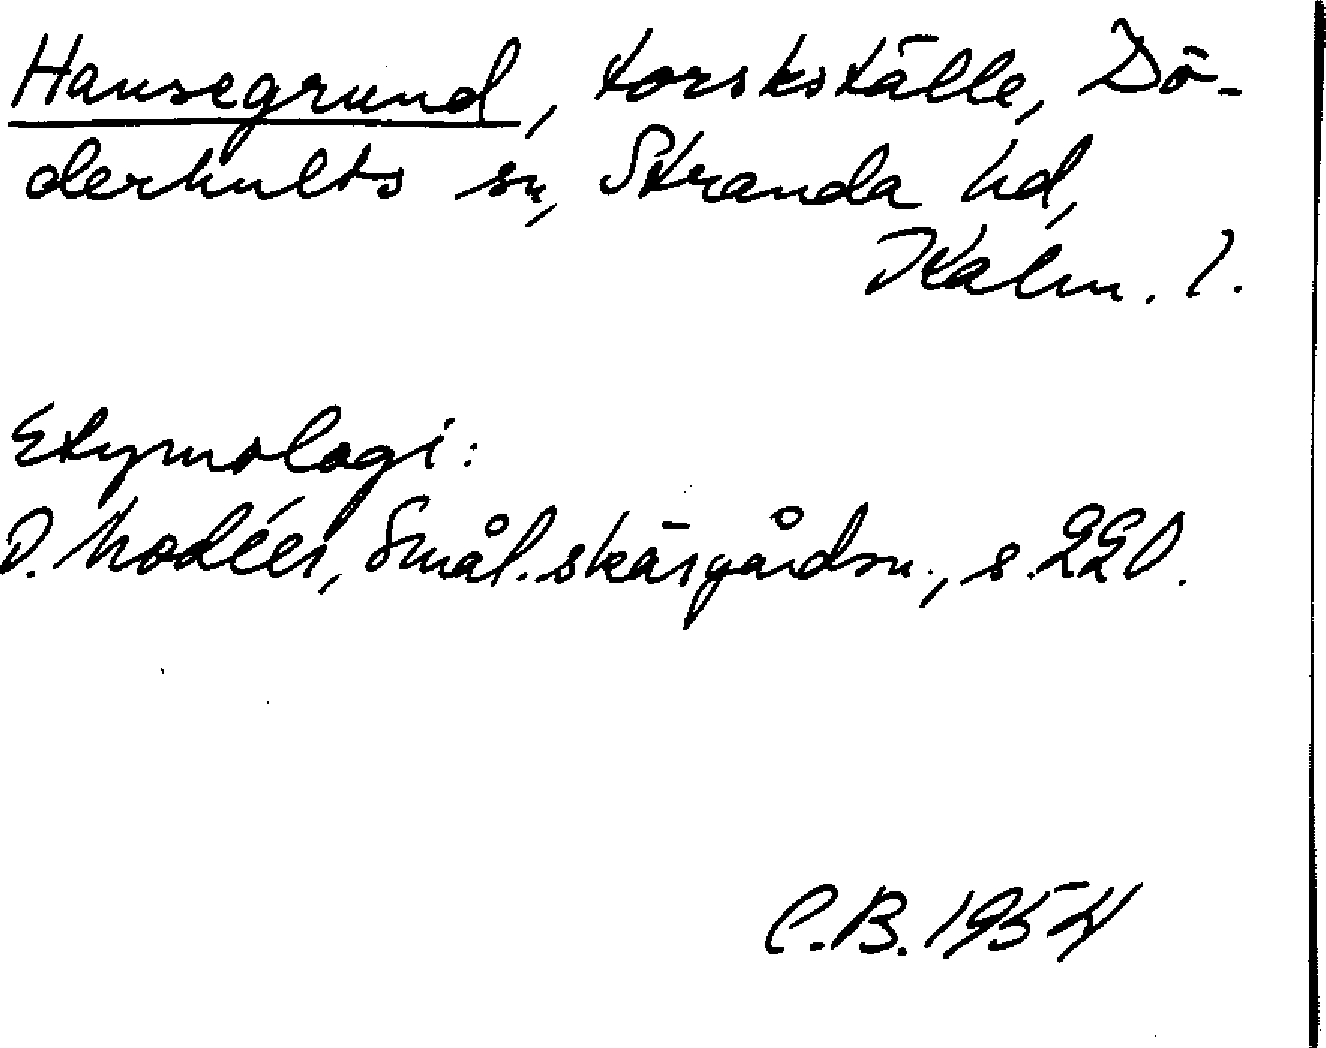 Hansegrund, torskställe, Dö-
derhults sn, Stranda hd,
Kalm. l.
Etymologi:
D. Modéer, Smål. skärgårdsn., s. 220.
C.B. 1954